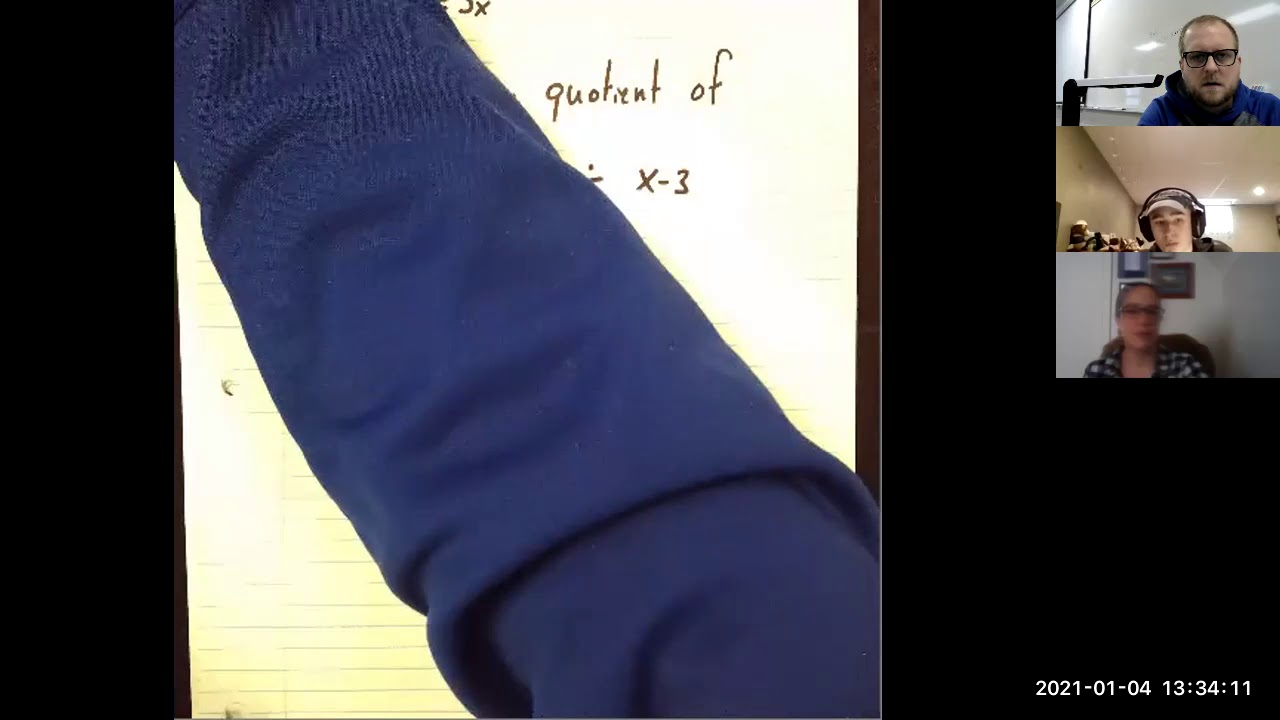 5x
quotient of
÷ x-3
2021-01-04 13:34:11